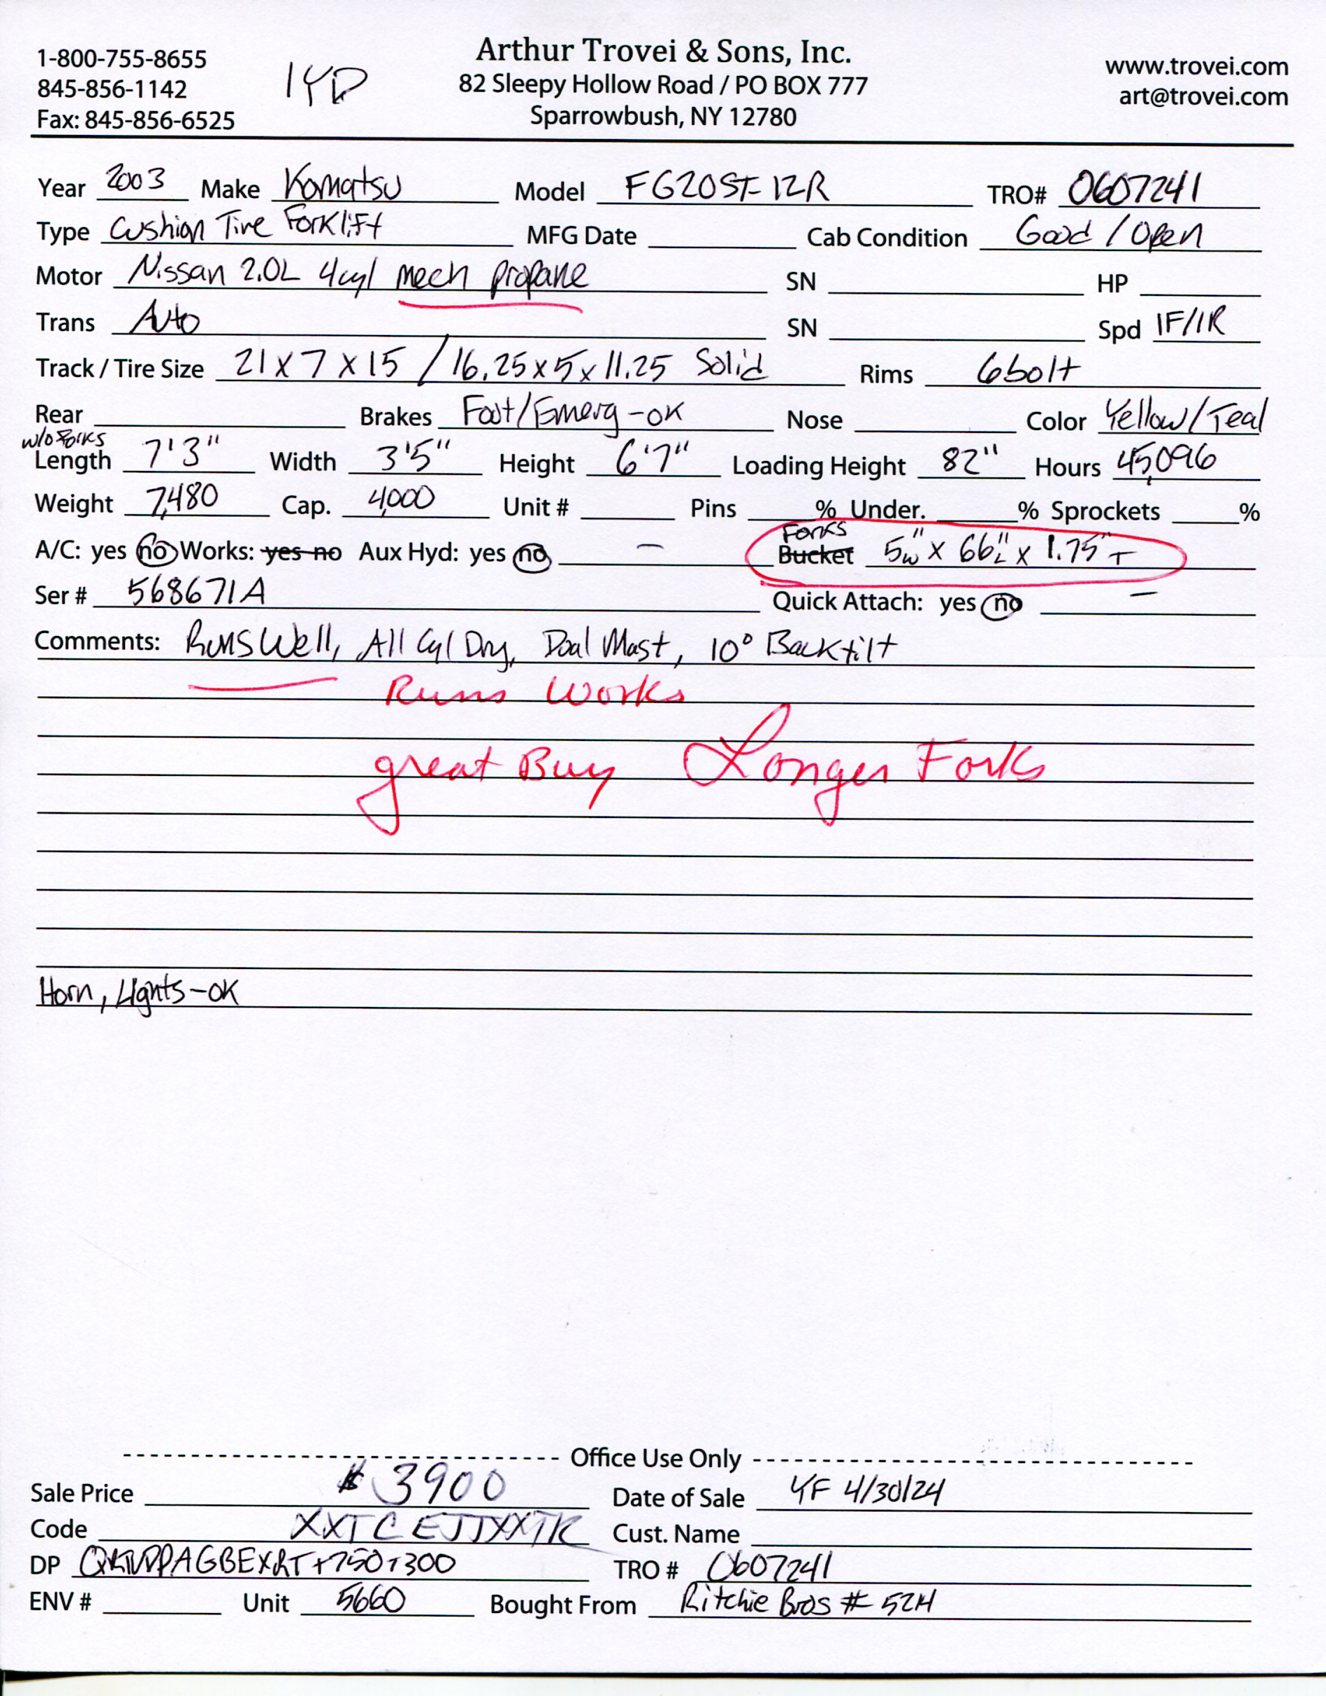 1-800-755-8655
845-856-1142
Fax: 845-856-6525
1YD
Arthur Trovei & Sons, Inc.
82 Sleepy Hollow Road / PO BOX 777
Sparrowbush, NY 12780
www.trovei.com
art@trovei.com
Year 2003 Make Komatsu Model FG20ST-12R TRO# 0607241
Type Cushion Tire Forklift MFG Date Cab Condition Good / Open
Motor Nissan 2.0L 4cyl mech propane SN HP
Trans Auto SN Spd 1F/1R
Track / Tire Size 21 x 7 x 15 / 16.25 x 5 x 11.25 Solid Rims 6bolt
Rear Brakes Foot/Emerg-OK Nose Color Yellow/Teal
w/o Forks
Length 7'3" Width 3'5" Height 6'7" Loading Height 82" Hours 45,096
Weight 7,480 Cap. 4,000 Unit # Pins % Under. % Sprockets %
Forks
A/C: yes no Works: yes no Aux Hyd: yes no — Bucket 5"W x 66"L x 1.75"T
Ser # 568671A Quick Attach: yes no —
Comments: Runs Well, All Cyl Dry, Dual Mast, 10° Backtilt
Runs Works
great Buy Longer Forks
Horn, Lights-OK
Office Use Only
Sale Price $3900 Date of Sale YF 4/30/24
Code XXTCEJJXXTK Cust. Name
DP +750+300 TRO # 0607241
ENV # Unit 5660 Bought From Ritchie Bros # 52H